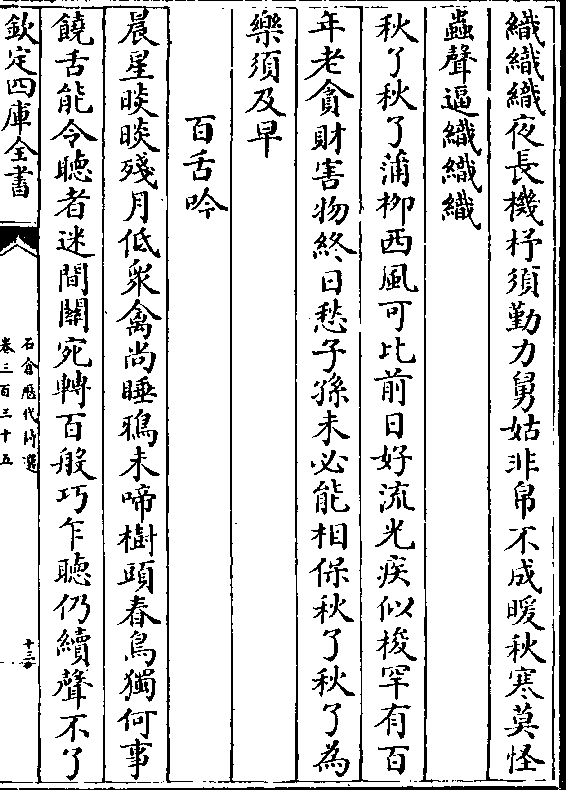 織織織夜長機杼須勤力舅姑非帛不成暖秋寒莫怪
蟲聲逼織織織
秋了秋了蒲柳西風可比前日好流光疾似梭罕有百
年老貪財害物終日愁子孫未必能相保秋了秋了為
樂須及早
百舌吟
晨星睒睒殘月低衆禽尚睡鴉未啼樹頭春鳥獨何事
饒舌能令聽者迷間關宛轉百般巧乍聽仍續聲不了
欽定四庫全書
石倉歷代詩選
卷三百三十五
十三